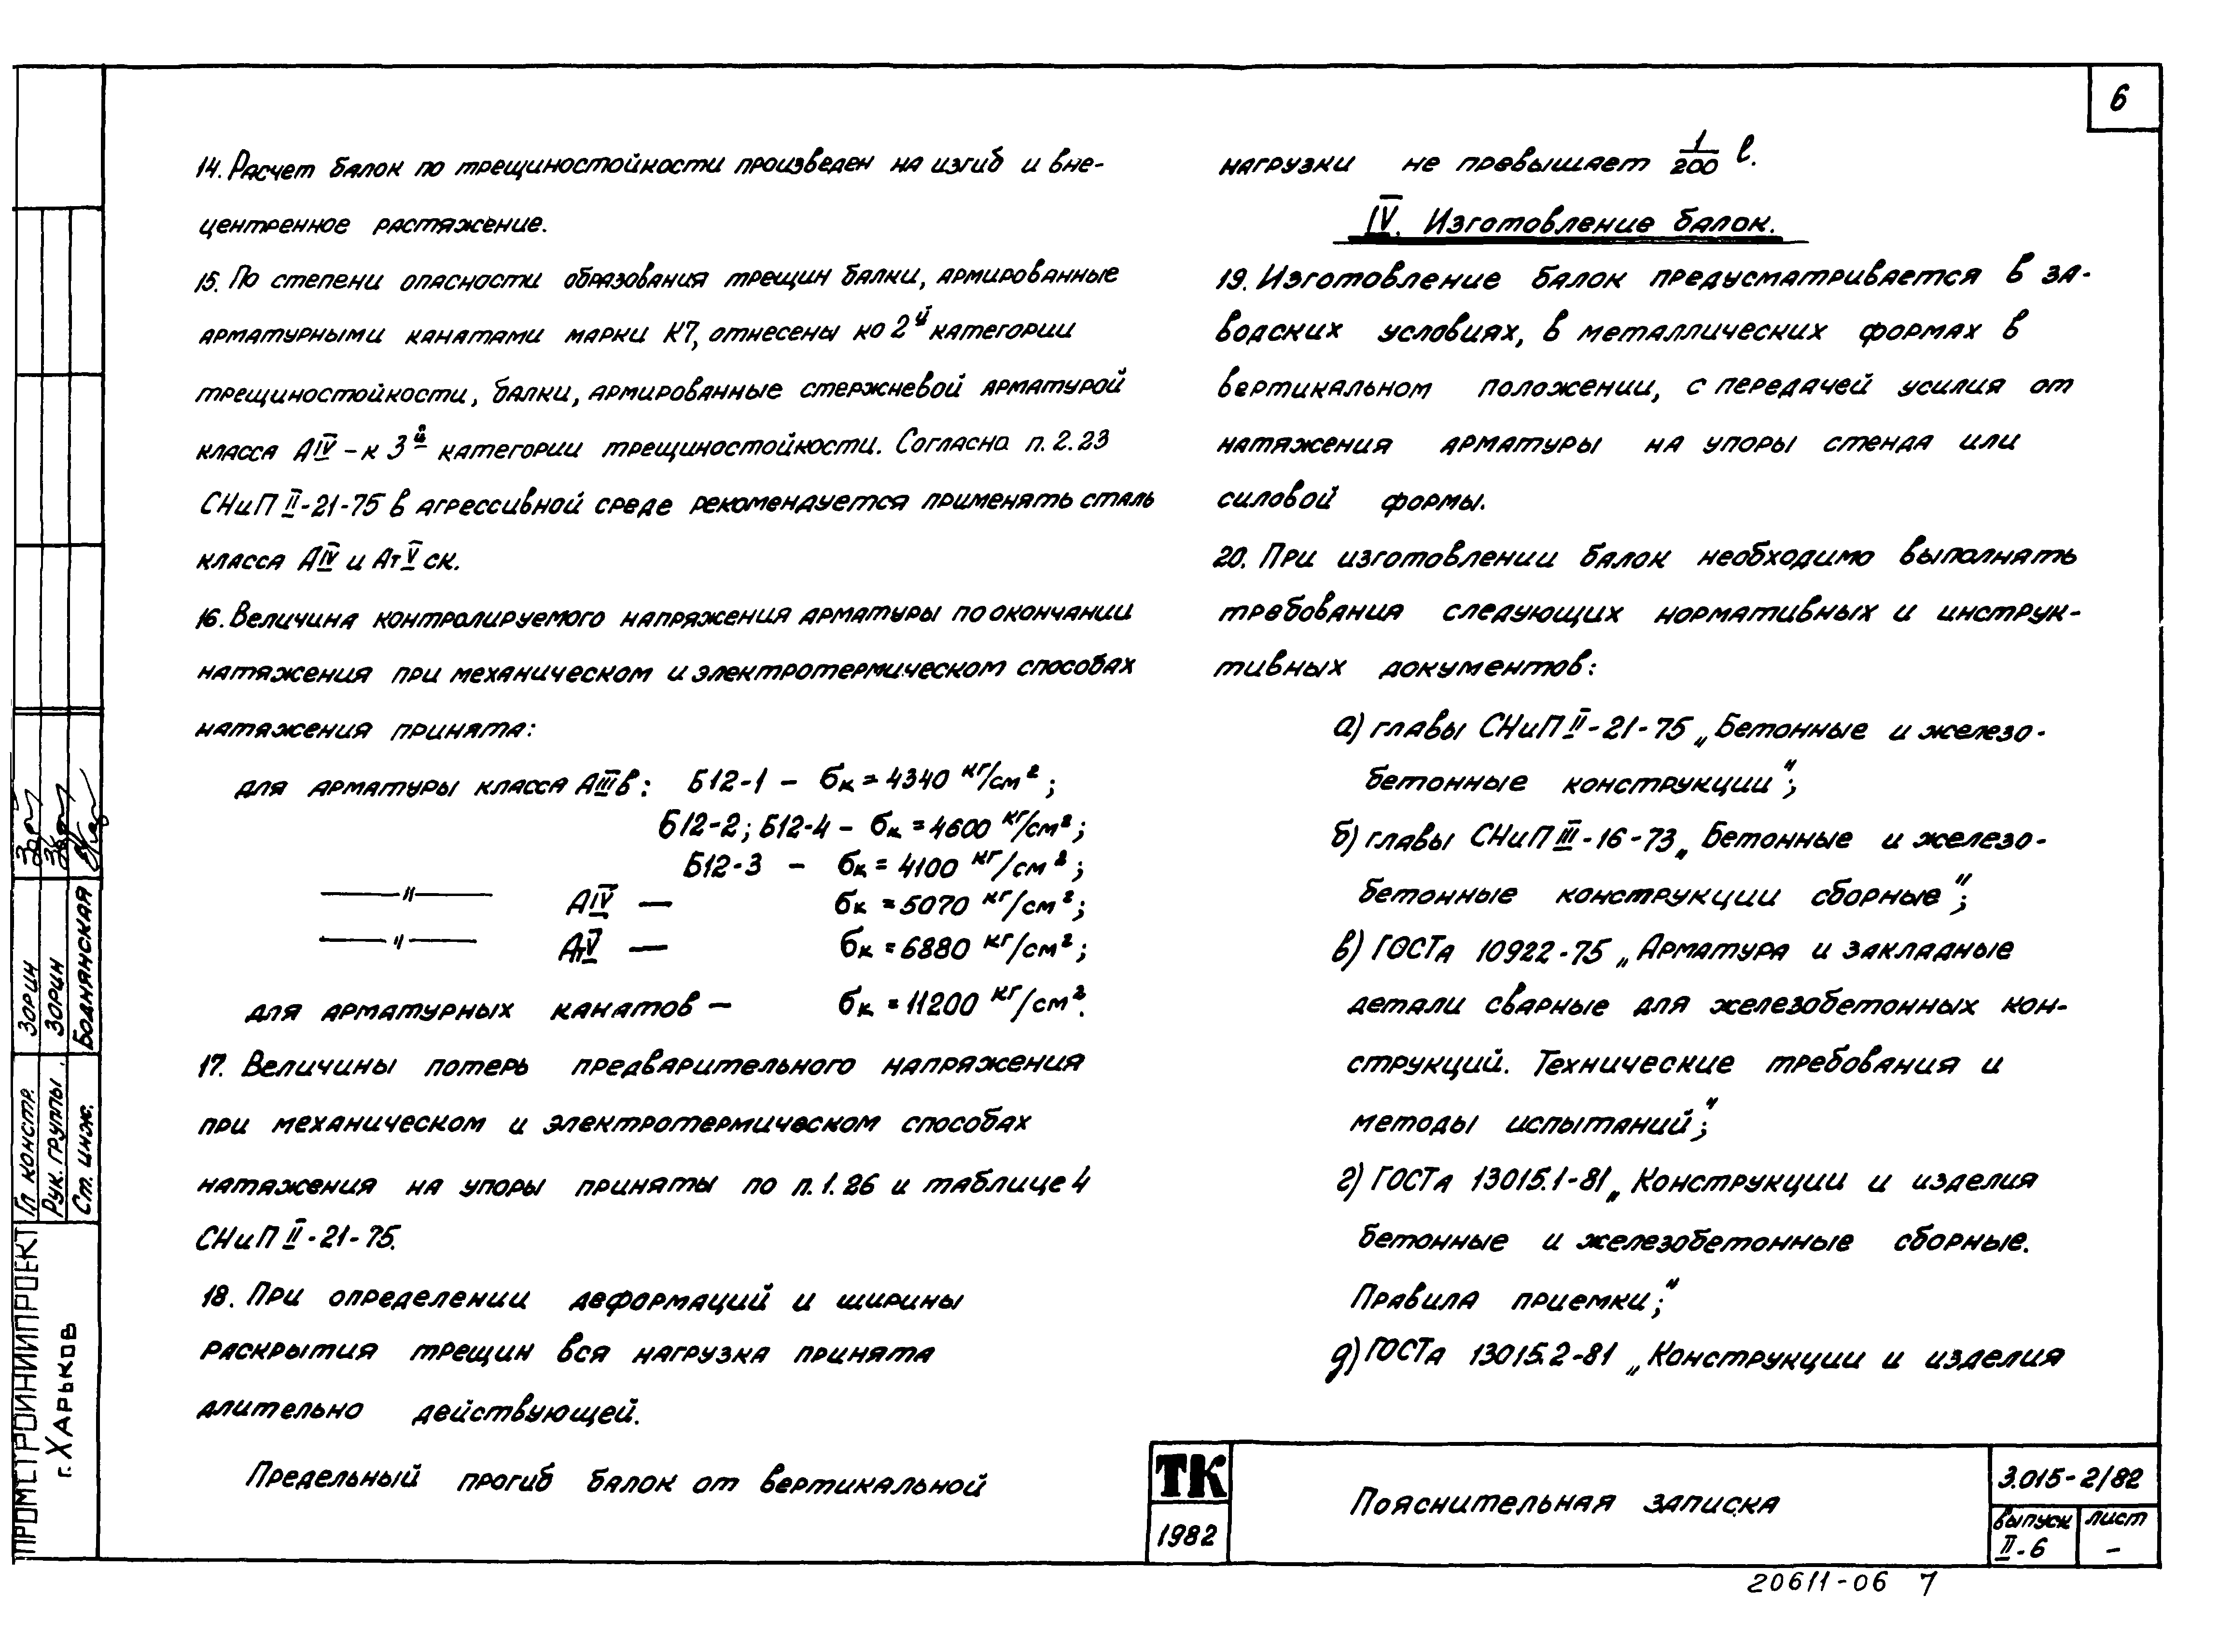 6
14. Расчет балок по трещиностойкости произведен на изгиб и вне-
центренное растяжение.
15. По степени опасности образования трещин балки, армированные
арматурными канатами марки К7, отнесены ко 2й категории
трещиностойкости, балки, армированные стержневой арматурой
класса АIV – к 3й категории трещиностойкости. Согласно п. 2.23
СНиП II-21-75 в агрессивной среде рекомендуется применять сталь
класса АIV и АтV ск.
16. Величина контролируемого напряжения арматуры по окончании
натяжения при механическом и электротермическом способах
натяжения принята:
для арматуры класса АIIIв: Б12-1 – σк = 4340 кг/см²;
Б12-2; Б12-4 – σк = 4600 кг/см²;
Б12-3 – σк = 4100 кг/см²;
—〃— АIV — σк = 5070 кг/см²;
—〃— АтV — σк = 6880 кг/см²;
для арматурных канатов – σк = 11200 кг/см².
17. Величины потерь предварительного напряжения
при механическом и электротермическом способах
натяжения на упоры приняты по п. 1.26 и таблице 4
СНиП II-21-75.
18. При определении деформаций и ширины
раскрытия трещин вся нагрузка принята
длительно действующей.
Предельный прогиб балок от вертикальной
нагрузки не превышает 1/200 l.
IV. Изготовление балок.
19. Изготовление балок предусматривается в за-
водских условиях, в металлических формах в
вертикальном положении, с передачей усилия от
натяжения арматуры на упоры стенда или
силовой формы.
20. При изготовлении балок необходимо выполнять
требования следующих нормативных и инструк-
тивных документов:
а) главы СНиП II-21-75 „Бетонные и железо-
бетонные конструкции";
б) главы СНиП III-16-73 „Бетонные и железо-
бетонные конструкции сборные";
в) ГОСТа 10922-75 „Арматура и закладные
детали сварные для железобетонных кон-
струкций. Технические требования и
методы испытаний";
г) ГОСТа 13015.1-81 „Конструкции и изделия
бетонные и железобетонные сборные.
Правила приемки;"
д) ГОСТа 13015.2-81 „Конструкции и изделия
ТК
1982
Пояснительная записка
3.015-2/82
выпуск лист
II-6 –
20611-06 7
Гл констр. Зорин
Рук. группы. Зорин
Ст. инж. Боднянская
ПРОМСТРОЙНИИПРОЕКТ
г. Харьков